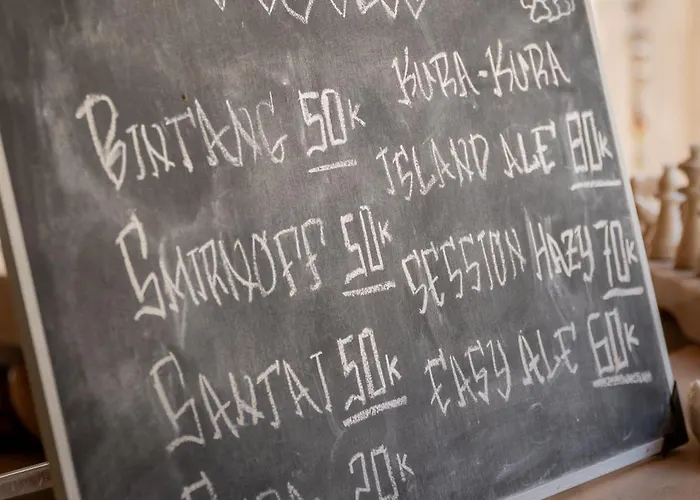 BINTANG 50K
SMIRNOFF 50K
SANTAI 50K
20K
KURA-KURA
ISLAND ALE 80K
SESSION HAZY 70K
EASY ALE 60K